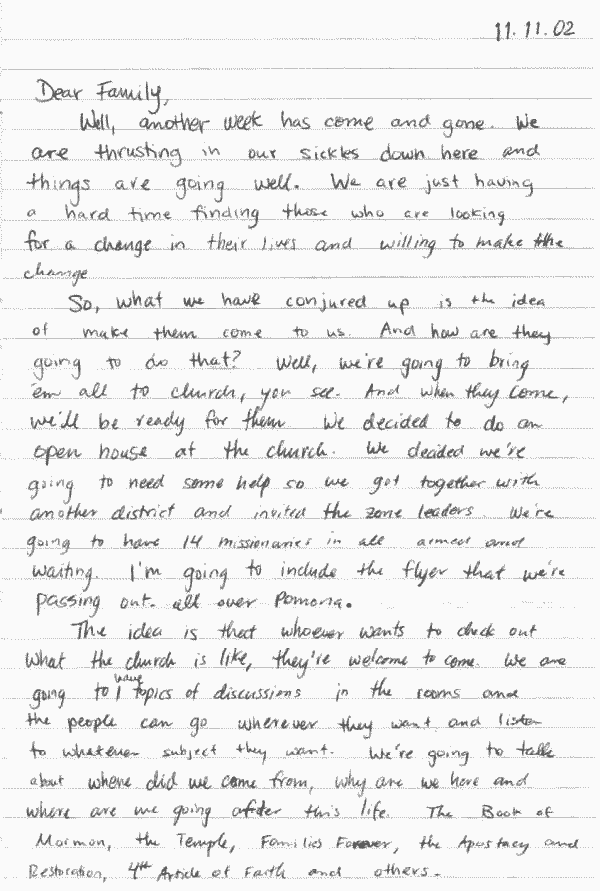 11.11.02
Dear Family,
Well, another week has come and gone. We
are thrusting in our sickles down here and
things are going well. We are just having
a hard time finding those who are looking
for a change in their lives and willing to make the
change
So, what we have conjured up is the idea
of make them come to us. And how are they
going to do that? Well, we're going to bring
'em all to church, you see. And when they come,
we'll be ready for them. We decided to do an
open house at the church. We decided we're
going to need some help so we got together with
another district and invited the zone leaders. We're
going to have 14 missionaries in all armed and
waiting. I'm going to include the flyer that we're
passing out. all over Pomona.
The idea is that whoever wants to check out
what the church is like, they're welcome to come. We are
going to have topics of discussions in the rooms and
the people can go wherever they want and listen
to whatever subject they want. We're going to talk
about where did we come from, why are we here and
where are we going after this life. The Book of
Mormon, the Temple, Families Forever, the Apostacy and
Restoration, 4th Article of Faith and others.